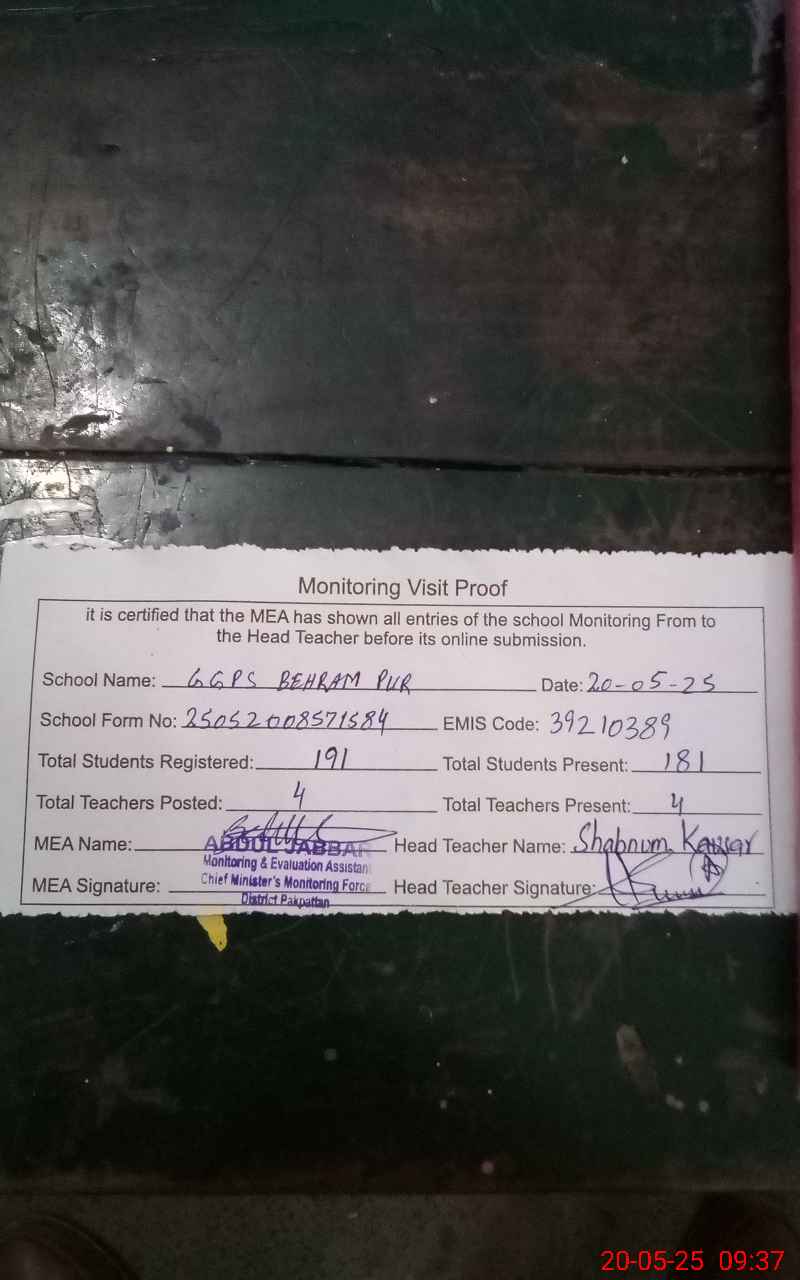 Monitoring Visit Proof
it is certified that the MEA has shown all entries of the school Monitoring From to
the Head Teacher before its online submission.
School Name: GGPS BEHRAM PUR Date: 20-05-25
School Form No: 25052008571584 EMIS Code: 39210389
Total Students Registered: 191 Total Students Present: 181
Total Teachers Posted: 4 Total Teachers Present: 4
MEA Name: ABDUL JABBAR Head Teacher Name: Shabnum Kausar
Monitoring & Evaluation Assistant
MEA Signature: Chief Minister's Monitoring Force Head Teacher Signature:
District Pakpattan
20-05-25 09:37